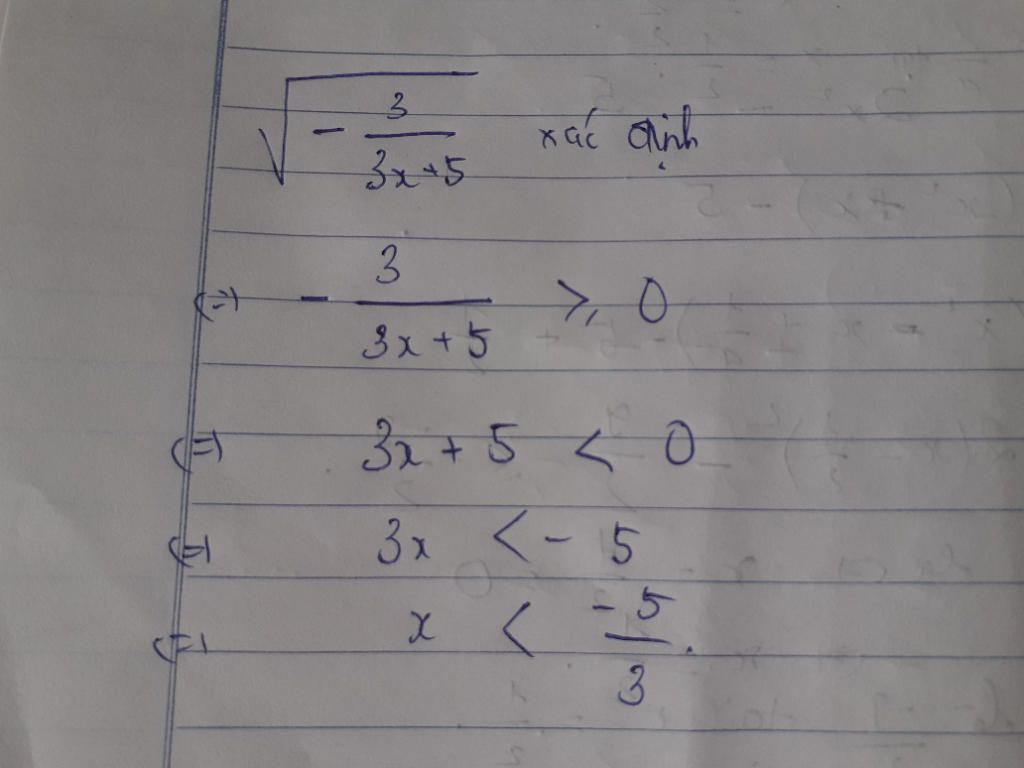 √(- 3/(3x+5)) xác định
⇔ - 3/(3x+5) ⩾ 0
⇔ 3x + 5 < 0
⇔ 3x < - 5
⇔ x < -5/3.